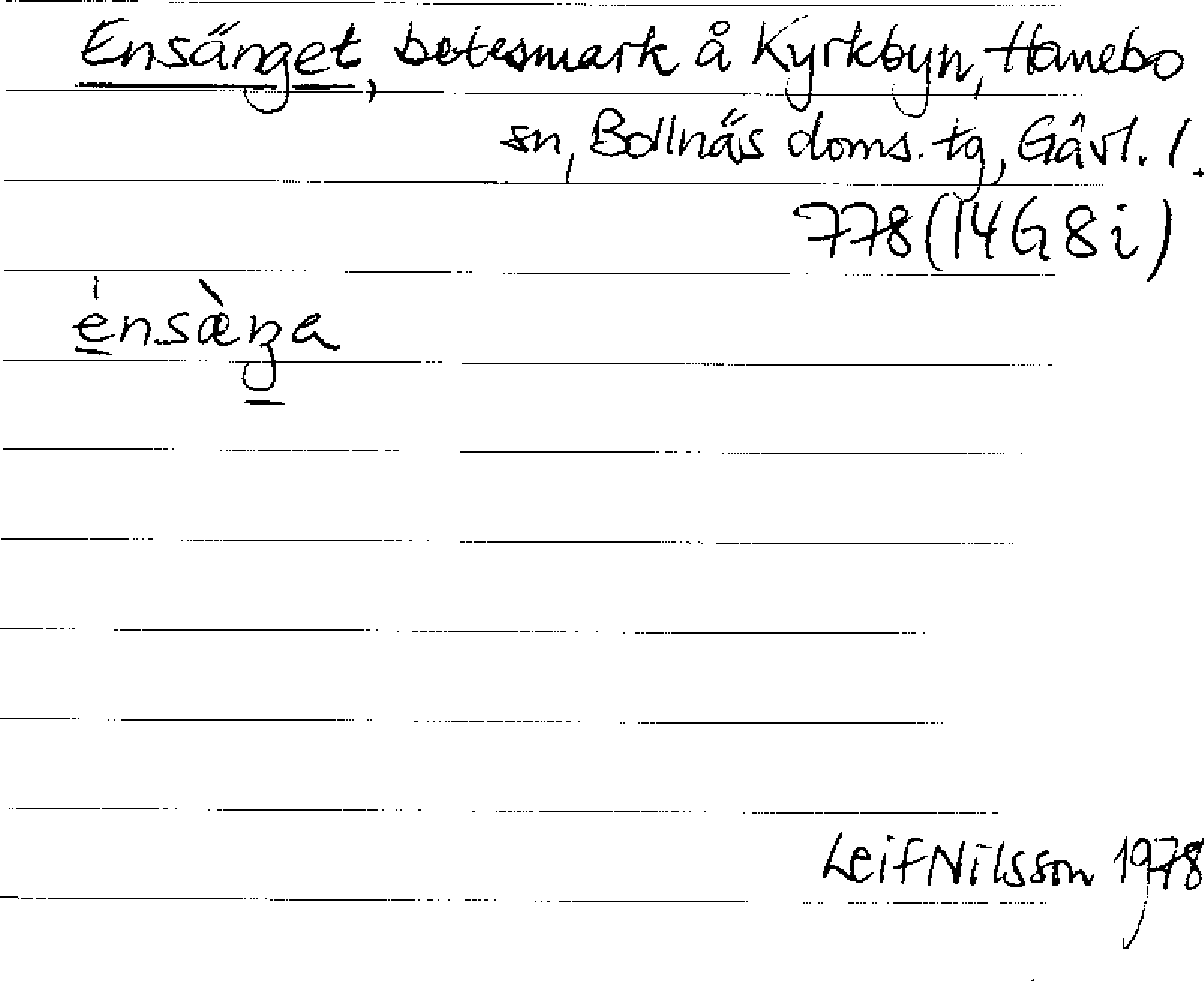 Ensänget, betesmark å Kyrkbyn, Hanebo
sn, Bollnäs doms. tg, Gävl. l.
778 (14G8i)
énsæ̀ŋa
Leif Nilsson 1978